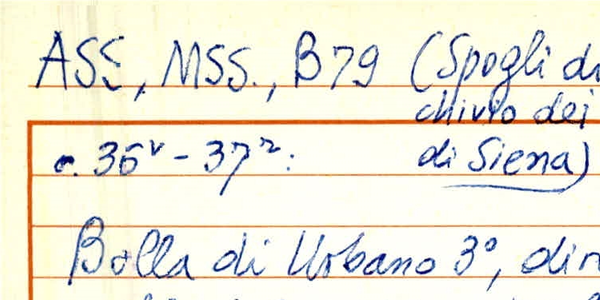 ASS, MSS., B79 (Spogli di
chivio dei
c. 36v - 37r:
di Siena)
Bolla di Urbano 3°, dir